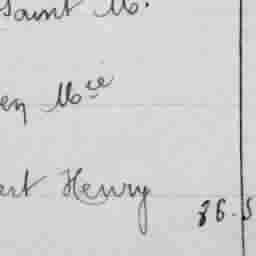 Saint M.
en Mcé
ert Henry
36.5